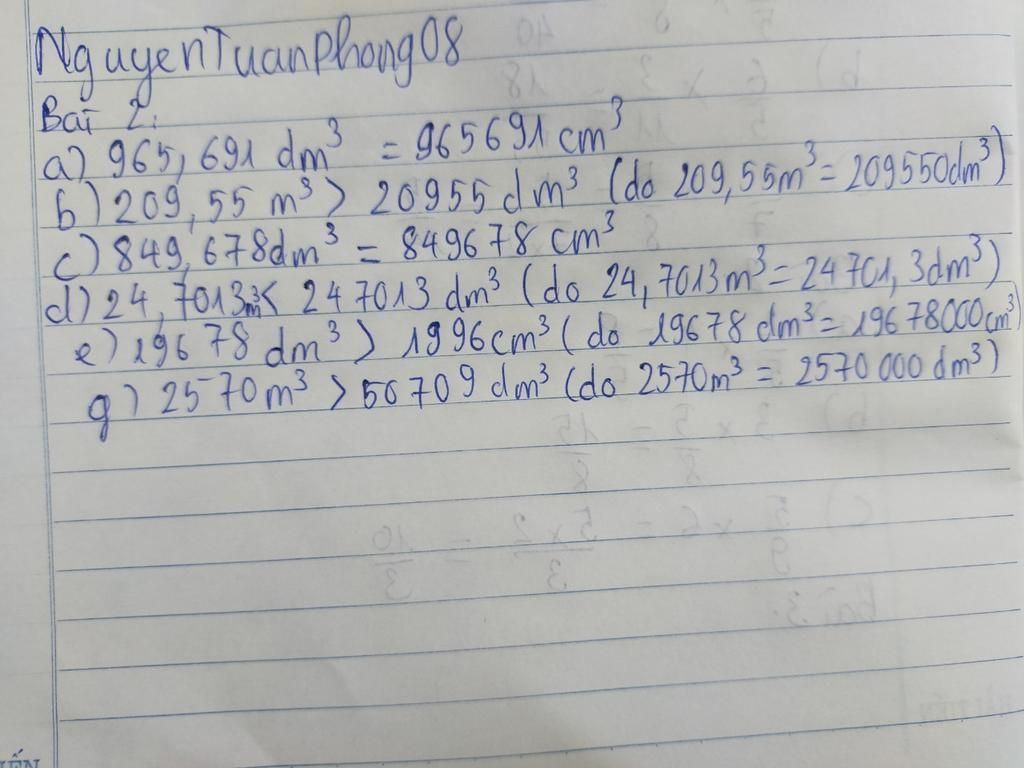 NguyenTuanPhong08
Bài 2:
a) 965,691 dm³ = 965691 cm³
b) 209,55 m³ > 20955 dm³ (do 209,55m³ = 209550dm³)
c) 849,678dm³ = 849678 cm³
d) 24,7013m³ < 247013 dm³ (do 24,7013m³ = 24701,3dm³)
e) 19678 dm³ > 1996cm³ (do 19678 dm³ = 19678000cm³)
g) 2570m³ > 50709 dm³ (do 2570m³ = 2570000 dm³)